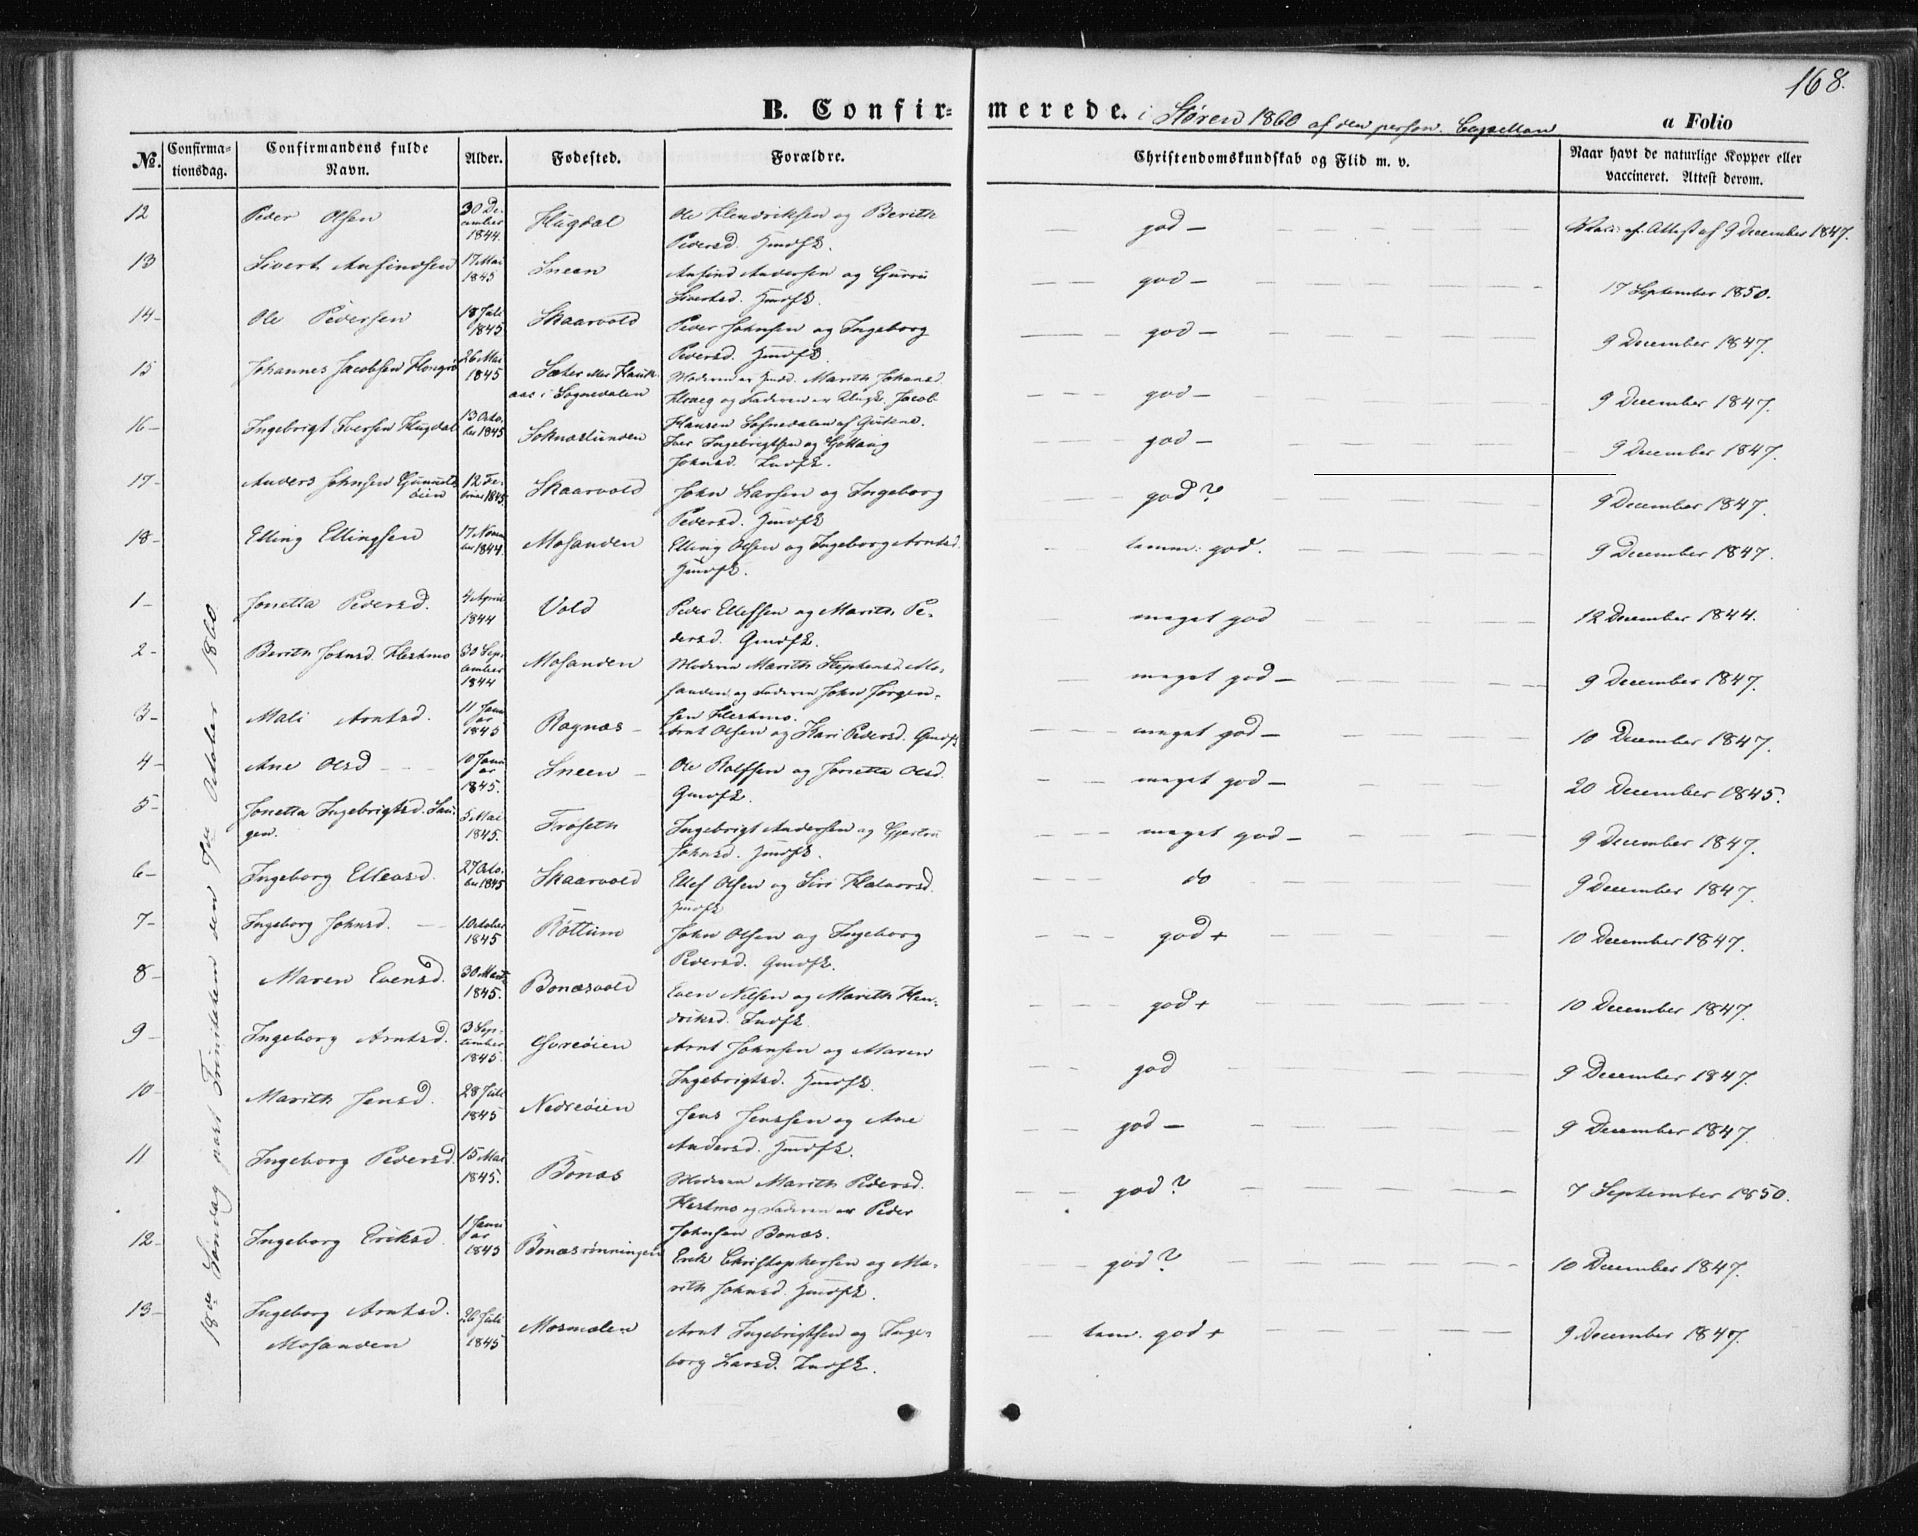 168.
B. Confirmerede. i Støren 1860 af den person. Capellan
a Folio
No. Confirmationsdag. Confirmandens fulde Navn. Alder. Fødested. Forældre. Christendomskundskab og Flid m. v. Naar havt de naturlige Kopper eller vaccineret. Attest derom.
18de Søndag post Trinitaten den 7de October 1860
12 Peder Olsen 30 December 1844. Hugdal Ole Hendriksen og Berith Pedersd. Hmdfk. god – Attest af 9 December 1847.
13 Sivert Anfindsen 17 Mai 1845 Sneen Anfind Andersen og Gurru Sivertsd. Hmdfk. god – 17 September 1850.
14 Ole Pedersen 18 Juli 1845 Skaarvold Peder Johnsen og Ingeborg Pedersd. Hmdfk. god – 9 December 1847.
15 Johannes Jacobsen 26 Mai 1845 Sæter i Sognedalen Moderen er Marith Johansd. og Faderen er Jacob Hansen god – 9 December 1847.
16 Ingebrigt Iversen Hugdal 13 October 1845 Soknæslunden Iver Ingebrigtsen og Johnsd. Indfk. god – 9 December 1847.
17 Anders Johnsen 12 Februar 1845. Skaarvold John Larsen og Ingeborg Pedersd. Hmdfk god? 9 December 1847.
18 Elling Ellingsen 17 November 1844. Mosanden Elling Olsen og Ingeborg Arntsd. Hmdfk. tamm: god. 9 December 1847.
1 Jonetta Pedersd. 4 April 1844 Vold Peder Ellefsen og Marith Pedersd. Gmdfk. meget god 12 December 1844.
2 Berith Johnsd. Hestmo 30 September 1844 Mosanden Moderen Marith Stephensd. Mosanden og Faderen John Jørgensen Hestmo. meget god – 9 December 1847.
3 Mali Arntsd. 11 Januar 1845 Ragnæs Arnt Olsen og Kari Pedersd. Gmdfk meget god – 10 December 1847.
4 Ane Olsd 10 Januar 1845. Sneen Ole Rolfsen og Jonetta Olsd. Gmdfk. meget god – 20 December 1845.
5 Jonetta Ingebrigtsd. 5 Mai 1845. Frøseth Ingebrigt Andersen og Gjertru Johnsd. Hmdfk. meget god – 9 December 1847.
6 Ingeborg Ellevsd. 27 October 1845 Skaarvold Ellef Olsen og Siri Halvorsd. Hmdfk do 9 December 1847.
7 Ingeborg Johnsd. 1 October 1845 Røttum John Olsen og Ingeborg Pedersd. Gmdfk. god + 10 December 1847.
8 Maren Evensd. 30 Marts 1845. Bonæsvold Even Nilsen og Marith Hendriksd. Indfk. god + 10 December 1847.
9 Ingeborg Arntsd. 3 September 1845. Gvreøien Arnt Johnsen og Maren Ingebrigtsd. Hmdfk. god 9 December 1847.
10 Marith Jensd. 28 Juli 1845 Nedreøien Jens Jenssen og Ane Andersd. Hmdfk. god – 9 December 1847.
11 Ingeborg Pedersd. 15 Mai 1845. Bonæs Moderen Marith Pedersd. Hestmo og Faderen er Peder Johnsen Bonæs. god? 7 September 1850.
12 Ingeborg Eriksd. 1 Januar 1845 Bonæsrønningen Erik Christophersen og Marith Johnsd. Hmdfk. god? 10 December 1847.
13 Ingeborg Arntsd. Mosanden 26 Juli 1845 Mosmælen Arnt Ingebrigtsen og Ingeborg Larsd. Indfk. tam. god + 9 December 1847.